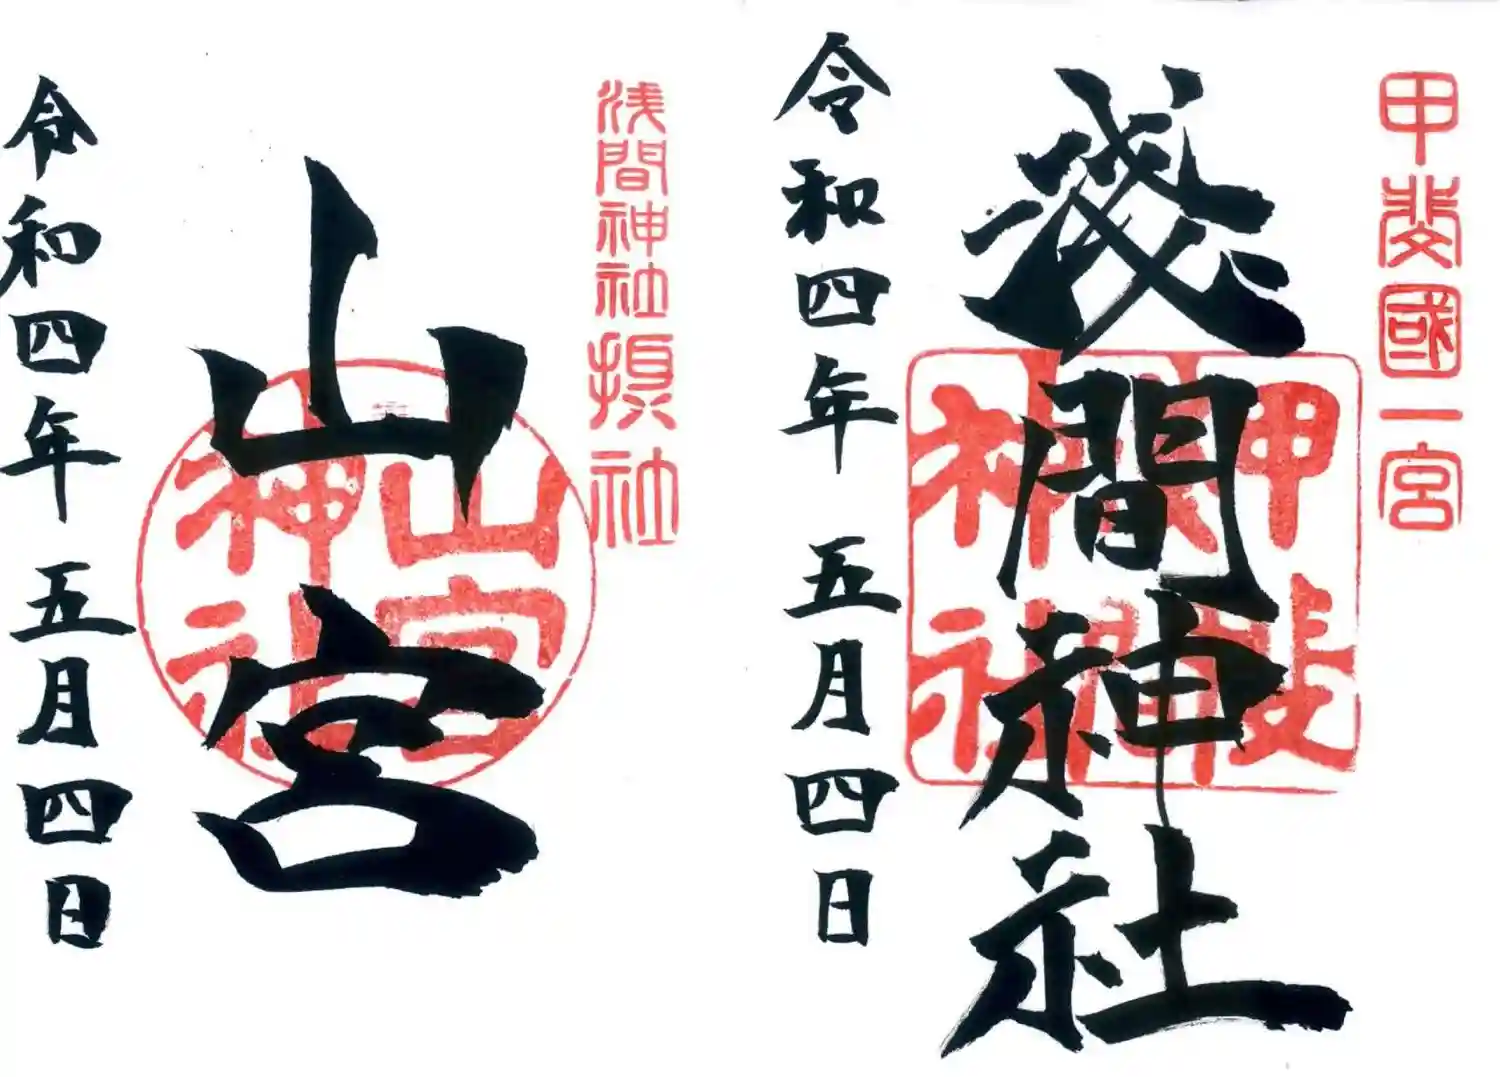 甲斐國一宮
浅間神社
甲斐
浅間
神社
令和四年 五月四日
浅間神社摂社
山宮
山宮
神社
令和四年 五月四日